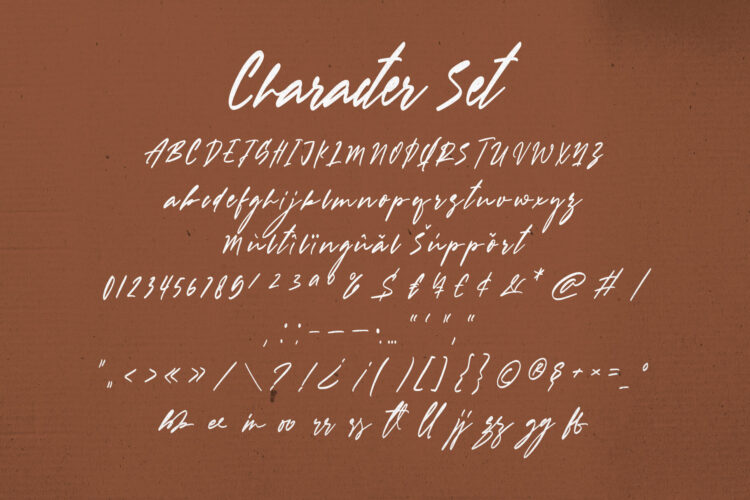 Character Set
ABCDEFGHIJKLMNOPQRSTUVWXYZ
abcdefghijklmnopqrstuvwxyz
Mùltîlïngûãl Šúppŏrt
0123456789¹²³ªº% $ ₤ ¥ £ ¢ & * @ # /
, . : ; - – — · … “ ‘ ’ “
" „ < > « » / \ ? ! ¿ ¡ ( ) [ ] { } © ® § + × = _ °
bb ee in oo rr ss tt ll jj zz gg ff